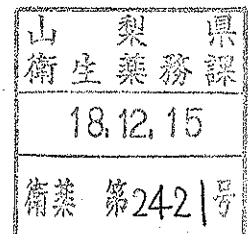 山梨県
衛生薬務課
18.12.15
衛薬 第2421号